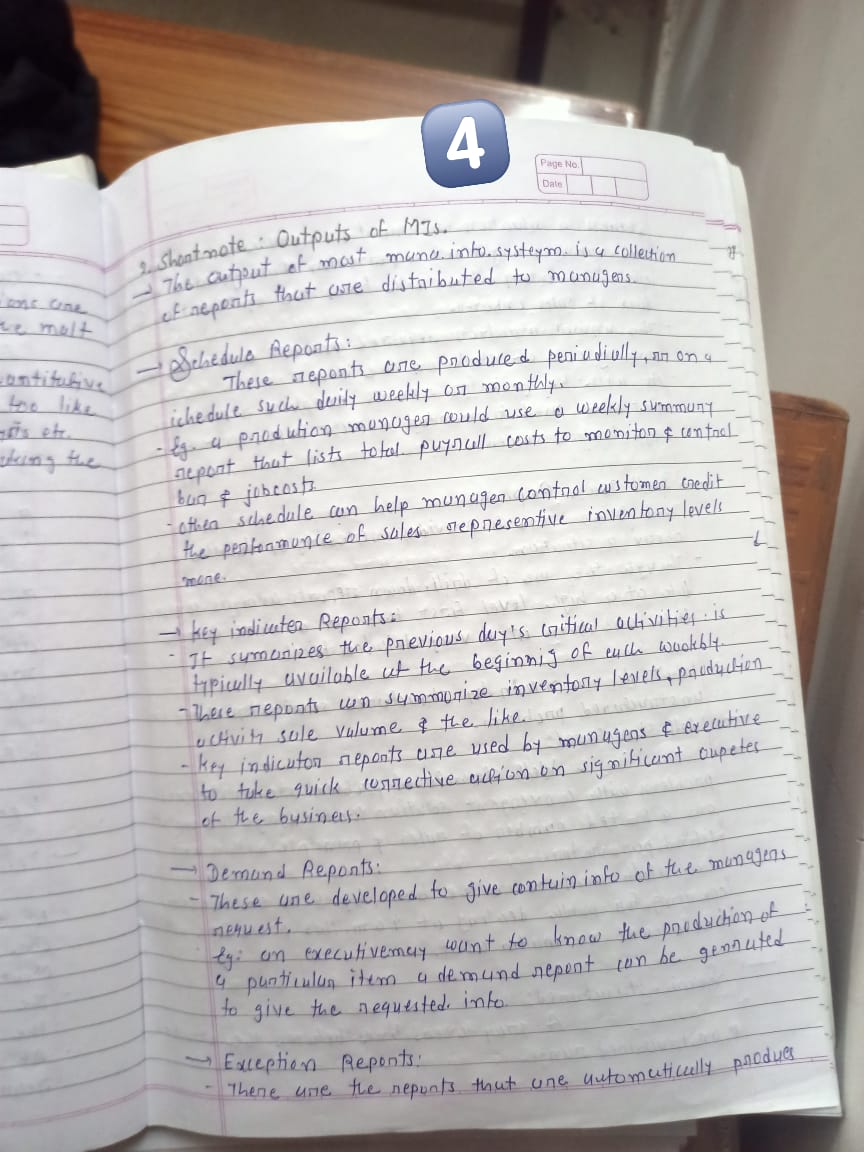 4
Page No.
Date
2. Shortnote : Outputs of MIs.
→ The output of most mana. info. systeym. is a collection
of reports that are distributed to managers.
→ Schedule Reports:
These reports are produced periodially, or on a
schedule such daily weekly or monthly.
- Eg. a prodution manager could use a weekly summary
report that lists total payroll costs to monitor & control
& jobcosts.
- other schedule can help manager control customer credit
the performance of sales representive inventory levels
more.
→ key indicater Reports:
- It summarizes the previous day's critical activities. is
typically available at the beginnig of each
- These reports can summarize inventory levels, production
activity sale volume & the like.
- key indicator reports are used by managers & executive
to take quick corrective action on significant
of the business.
→ Demand Reports:
- These are developed to give contain info of the managers
request.
Eg: an executivemay want to know the production of
a particular item a demand report can be genrated
to give the requested. info.
→ Exception Reports:
- There are the reports that are automatically produes
ons are
antitative
too like
etc.
king the